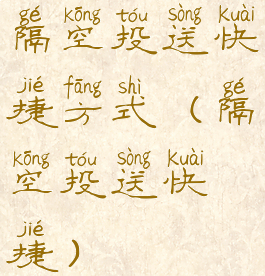 gé kōng tóu sòng kuài
隔空投送快
jié fāng shì gé
捷方式（隔
kōng tóu sòng kuài
空投送快
jié
捷）